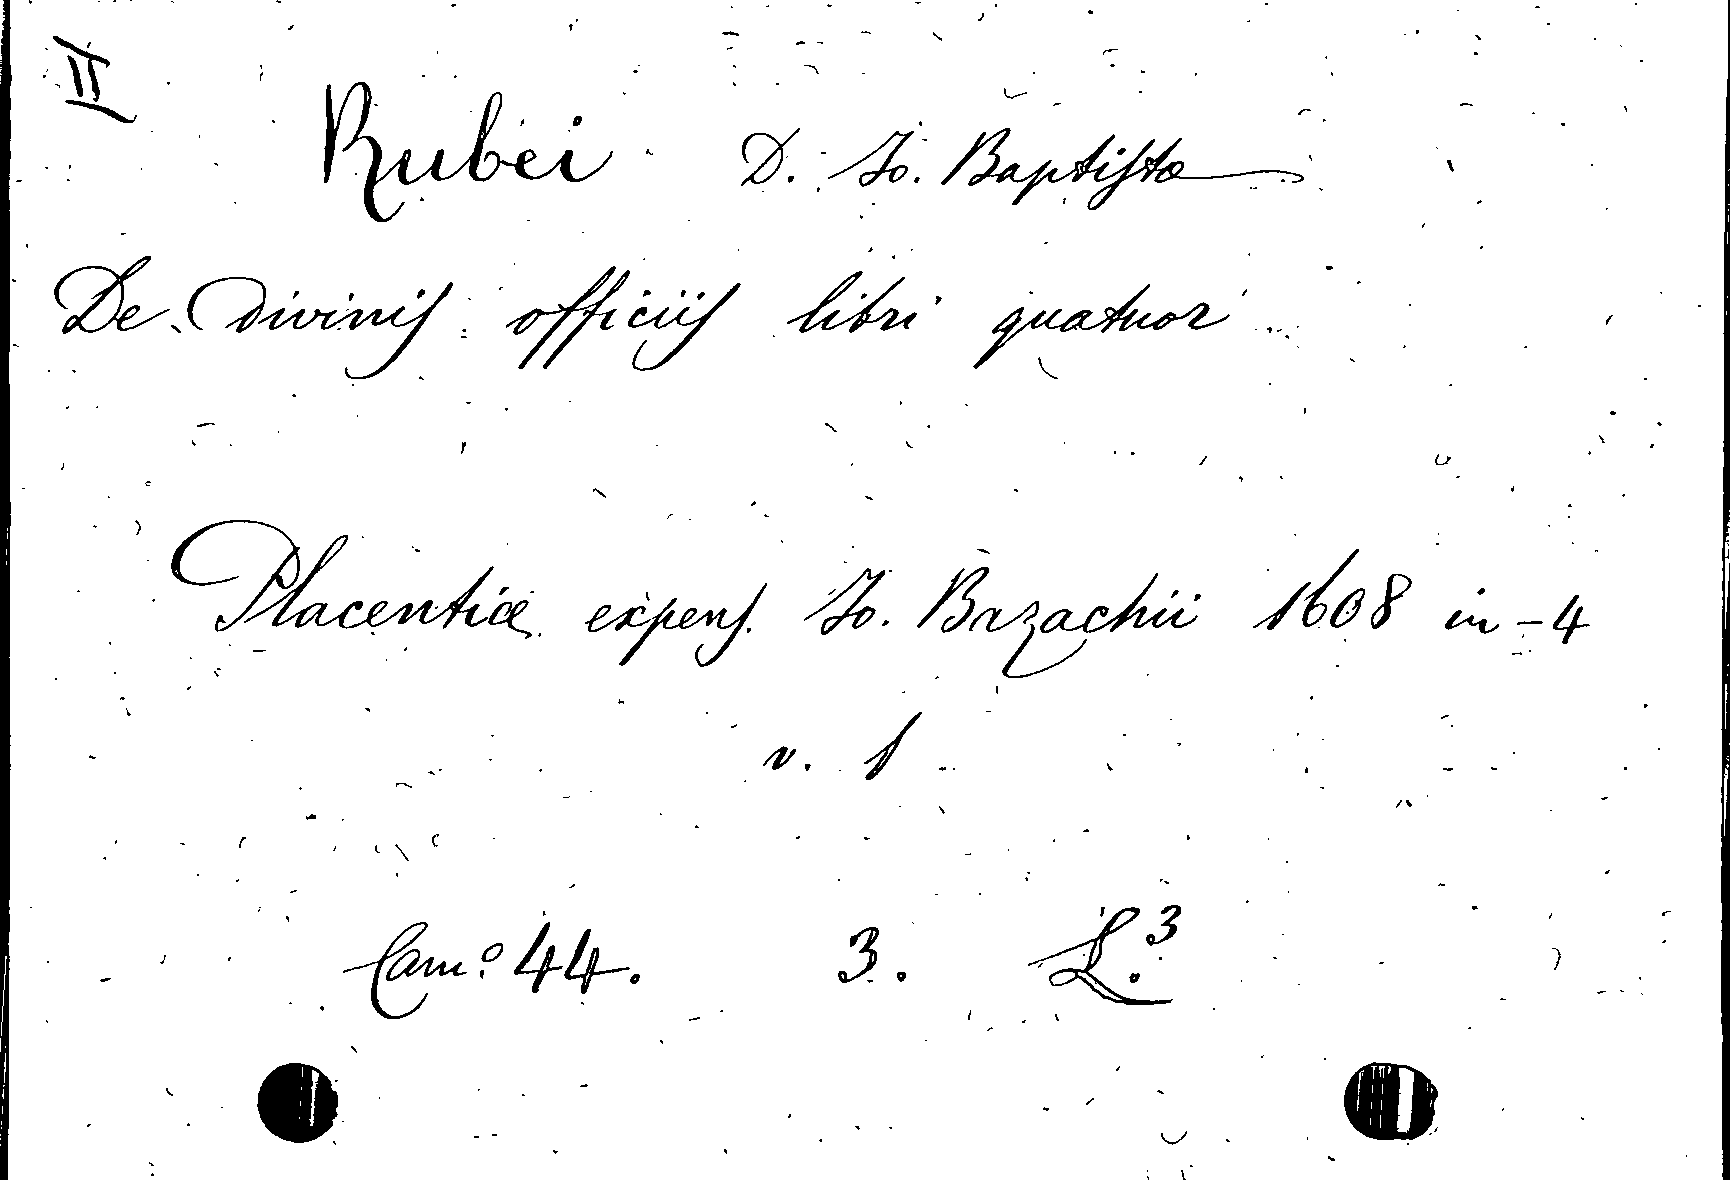 II
Rubei D. Jo. Baptistæ
De divinis officiis libri quatuor
Placentiæ expens. Jo. Bazachii 1608 in-4
v. 1
Cam.º 44. 3. L.³